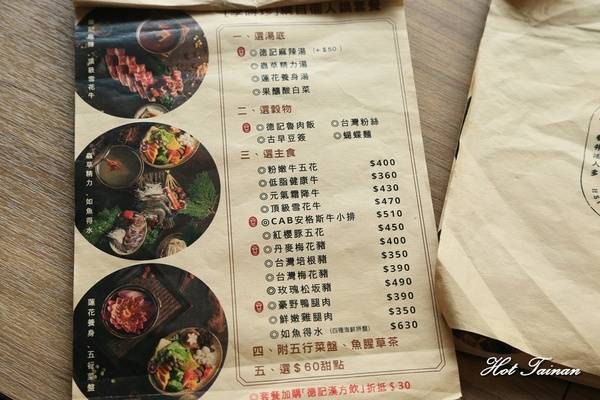 個人鍋套餐
一、選湯底
◎德記麻辣湯 (+$50)
◎蟲草精力湯
◎蓮花養身湯
◎果釀酸白菜
二、選穀物
◎德記魯肉飯 ◎台灣粉絲
◎古早豆簽 ◎蝴蝶麵
三、選主食
◎粉嫩牛五花 $400
◎低脂健康牛 $360
◎元氣霜降牛 $430
◎頂級雪花牛 $470
◎CAB安格斯牛小排 $510
◎紅櫻豚五花 $450
◎丹麥梅花豬 $400
◎台灣培根豬 $350
◎台灣梅花豬 $390
◎玫瑰松坂豬 $490
◎豪野鴨腿肉 $390
◎鮮嫩雞腿肉 $350
◎如魚得水 (四種海鮮拼盤) $630
四、附五行菜盤、魚腥草茶
五、選$60甜點
◎套餐加購「德記漢方飲」折抵$30
頂級雪花牛
蟲草精力、如魚得水
蓮花養身、五行菜盤
Hot Tainan